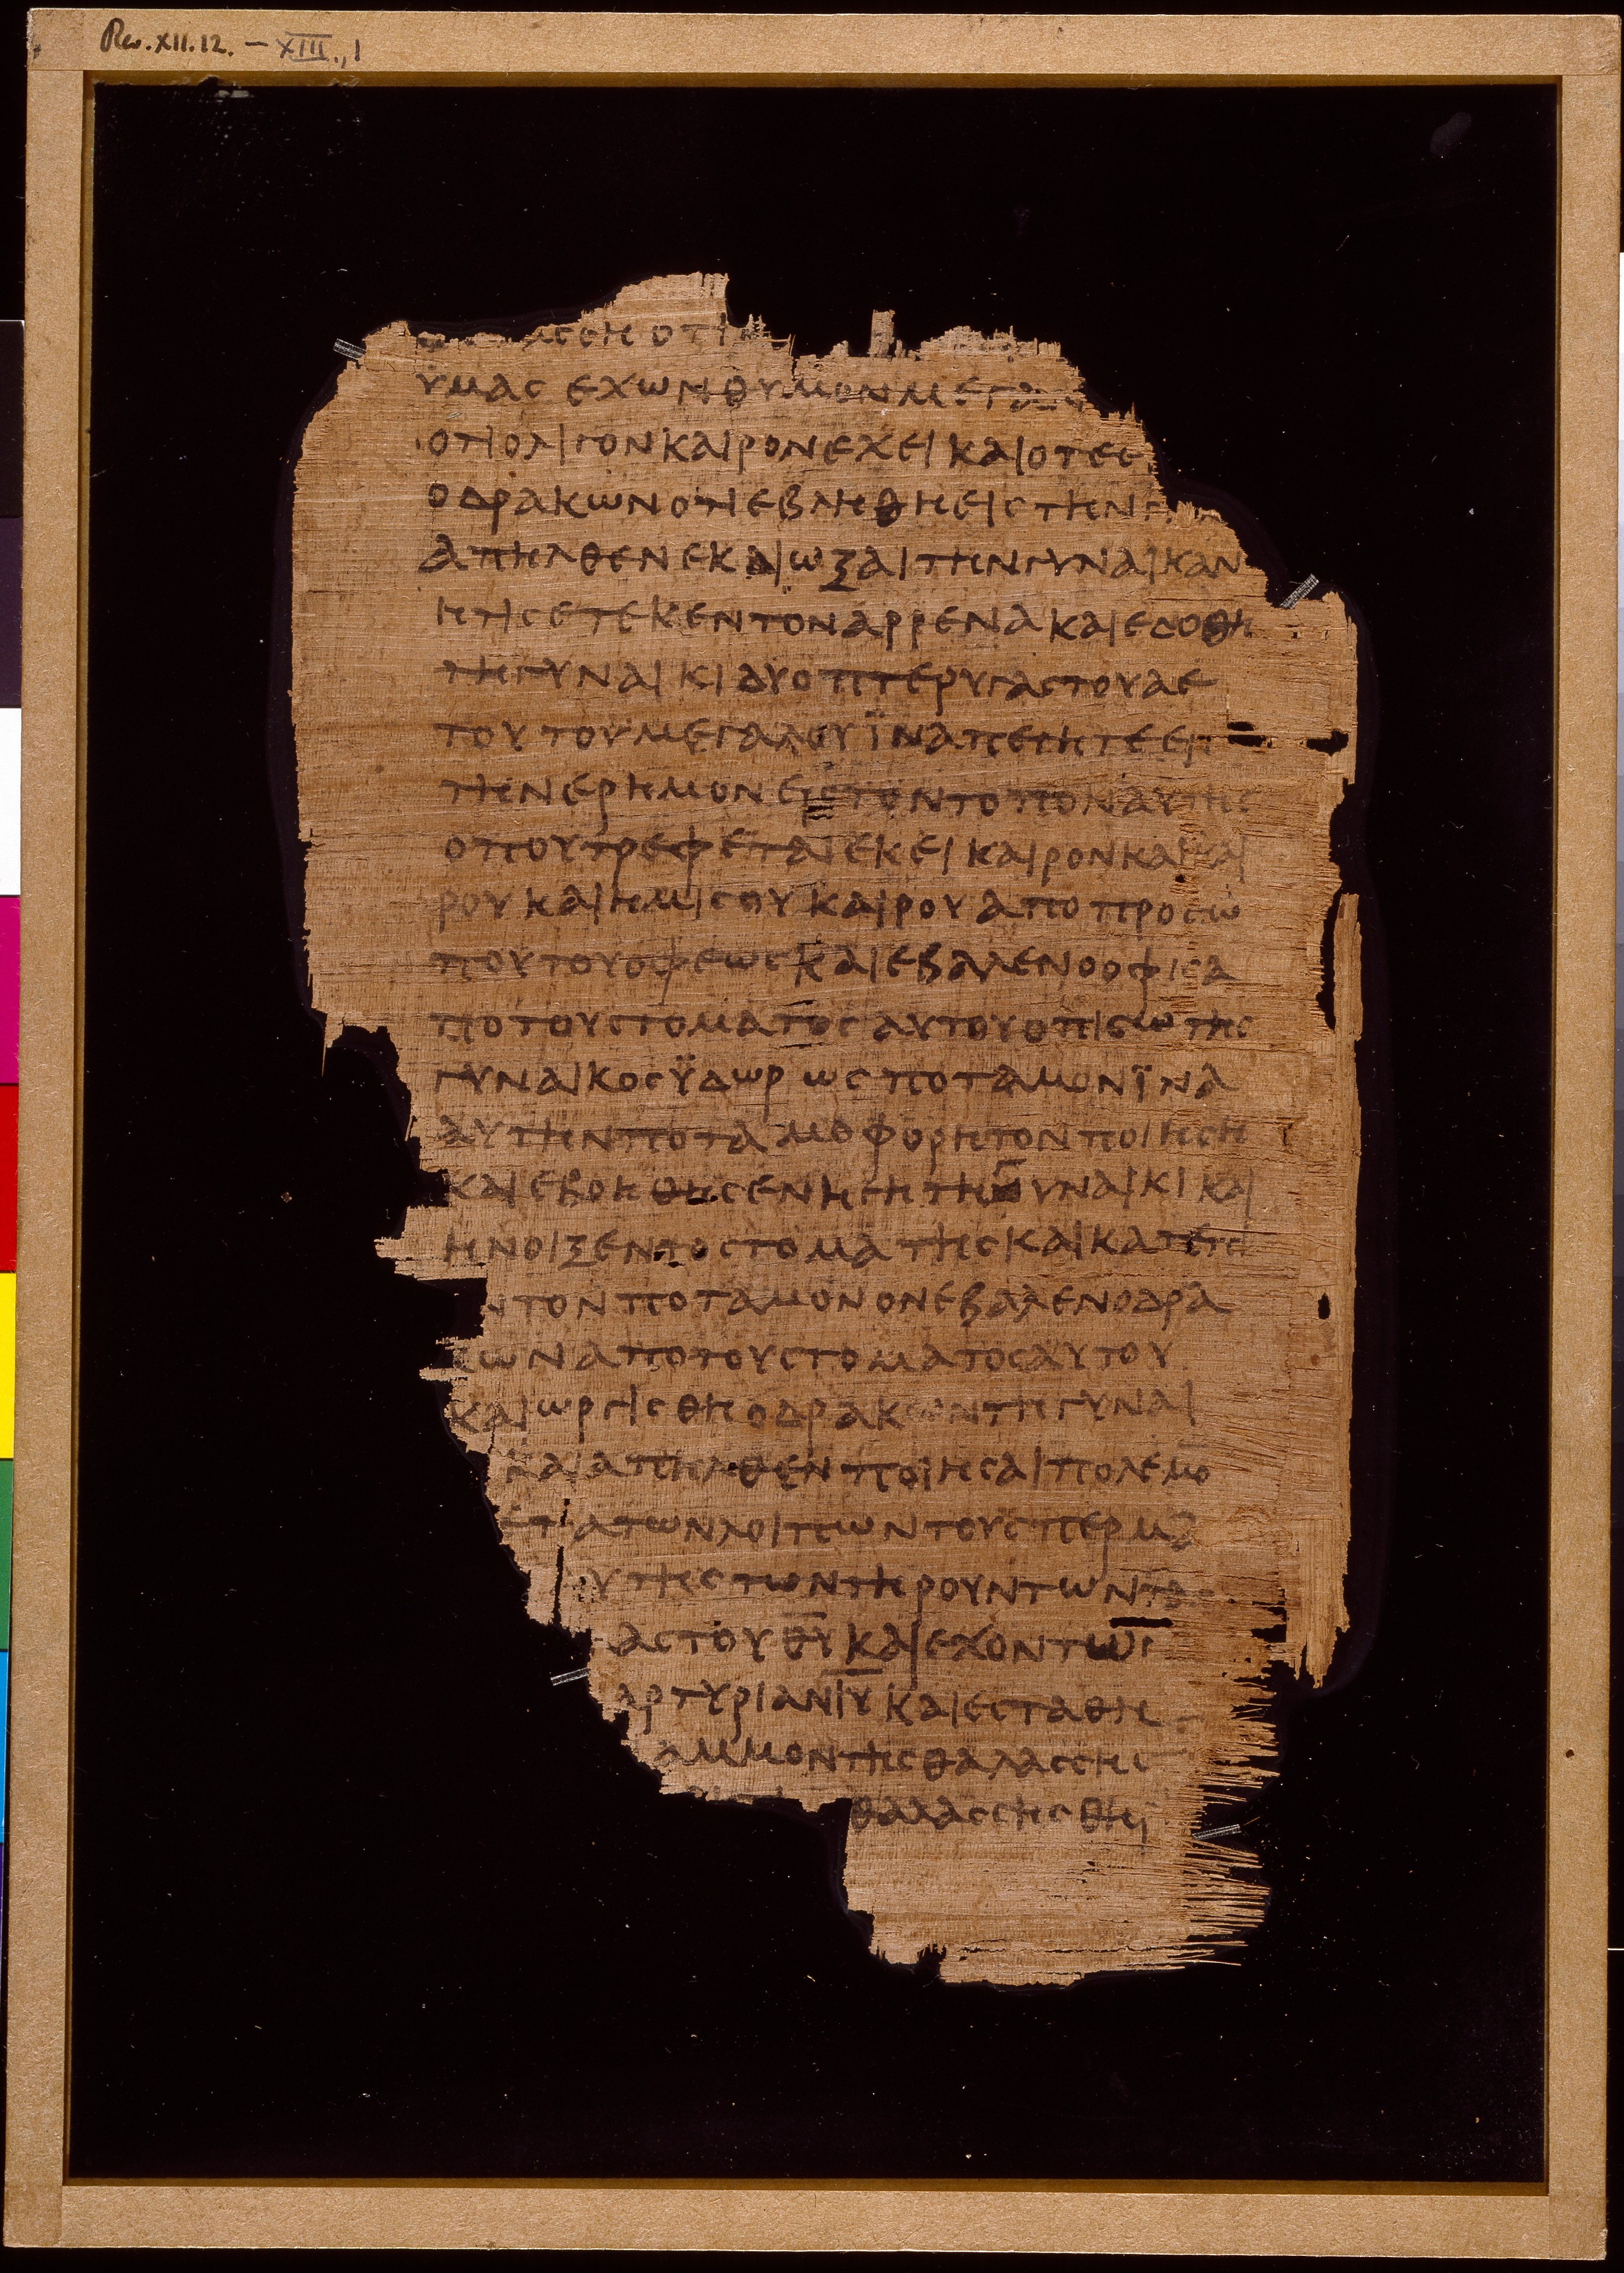 Rev. XII. 12. — XIII., 1
ΛΑΣΣΗ ΟΤΙ
ΥΜΑΣ ΕΧΩΝ ΘΥΜΟΝ ΜΕΓΑ
ΟΤΙ ΟΛΙΓΟΝ ΚΑΙΡΟΝ ΕΧΕΙ ΚΑΙ ΟΤΕ Ε
Ο ΔΡΑΚΩΝ ΟΤΙ ΕΒΛΗΘΗ ΕΙΣ ΤΗΝ
ΑΠΗΛΘΕΝ ΕΚΔΙΩΞΑΙ ΤΗΝ ΓΥΝΑΙΚΑΝ
ΗΤΙΣ ΕΤΕΚΕΝ ΤΟΝ ΑΡΡΕΝΑ ΚΑΙ ΕΔΟΘΗ
ΤΗ ΓΥΝΑΙΚΙ ΔΥΟ ΠΤΕΡΥΓΑΣ ΤΟΥ ΑΕ
ΤΟΥ ΤΟΥ ΜΕΓΑΛΟΥ ΪΝΑ ΠΕΤΗΤΕ ΕΙΣ
ΤΗΝ ΕΡΗΜΟΝ ΕΙΣ ΤΟΝ ΤΟΠΟΝ ΑΥΤΗΣ
ΟΠΟΥ ΤΡΕΦΕΤΑΙ ΕΚΕΙ ΚΑΙΡΟΝ ΚΑΙ ΚΑΙ
ΡΟΥ ΚΑΙ ΗΜΙΣΟΥ ΚΑΙΡΟΥ ΑΠΟ ΠΡΟΣΩ
ΠΟΥ ΤΟΥ ΟΦΕΩΣ ΚΑΙ ΕΒΑΛΕΝ Ο ΟΦΙΣ Α
ΠΟ ΤΟΥ ΣΤΟΜΑΤΟΣ ΑΥΤΟΥ ΟΠΙΣΩ ΤΗΣ
ΓΥΝΑΙΚΟΣ ΫΔΩΡ ΩΣ ΠΟΤΑΜΟΝ ΪΝΑ
ΑΥΤΗΝ ΠΟΤΑΜΟΦΟΡΗΤΟΝ ΠΟΙΗΣΗ
ΚΑΙ ΕΒΟΗΘΗΣΕΝ Η ΓΗ ΤΗ ΓΥΝΑΙΚΙ ΚΑΙ
ΗΝΟΙΞΕΝ ΤΟ ΣΤΟΜΑ ΤΗΣ ΚΑΙ ΚΑΤΕΠΙ
Ν ΤΟΝ ΠΟΤΑΜΟΝ ΟΝ ΕΒΑΛΕΝ Ο ΔΡΑ
ΚΩΝ ΑΠΟ ΤΟΥ ΣΤΟΜΑΤΟΣ ΑΥΤΟΥ
ΚΑΙ ΩΡΓΙΣΘΗ Ο ΔΡΑΚΩΝ ΤΗ ΓΥΝΑΙ
ΚΑΙ ΑΠΗΛΘΕΝ ΠΟΙΗΣΑΙ ΠΟΛΕΜΟ
ΕΤΑ ΤΩΝ ΛΟΙΠΩΝ ΤΟΥ ΣΠΕΡΜΑ
ΥΤΗΣ ΤΩΝ ΤΗΡΟΥΝΤΩΝ ΤΑΣ
ΑΣ ΤΟΥ Θ̅Υ̅ ΚΑΙ ΕΧΟΝΤΩΝ
ΑΡΤΥΡΙΑΝ Ι̅Υ̅ ΚΑΙ ΕΣΤΑΘΗ
ΑΜΜΟΝ ΤΗΣ ΘΑΛΑΣΣΗΣ
ΘΑΛΑΣΣΗΣ ΘΗΡΙ